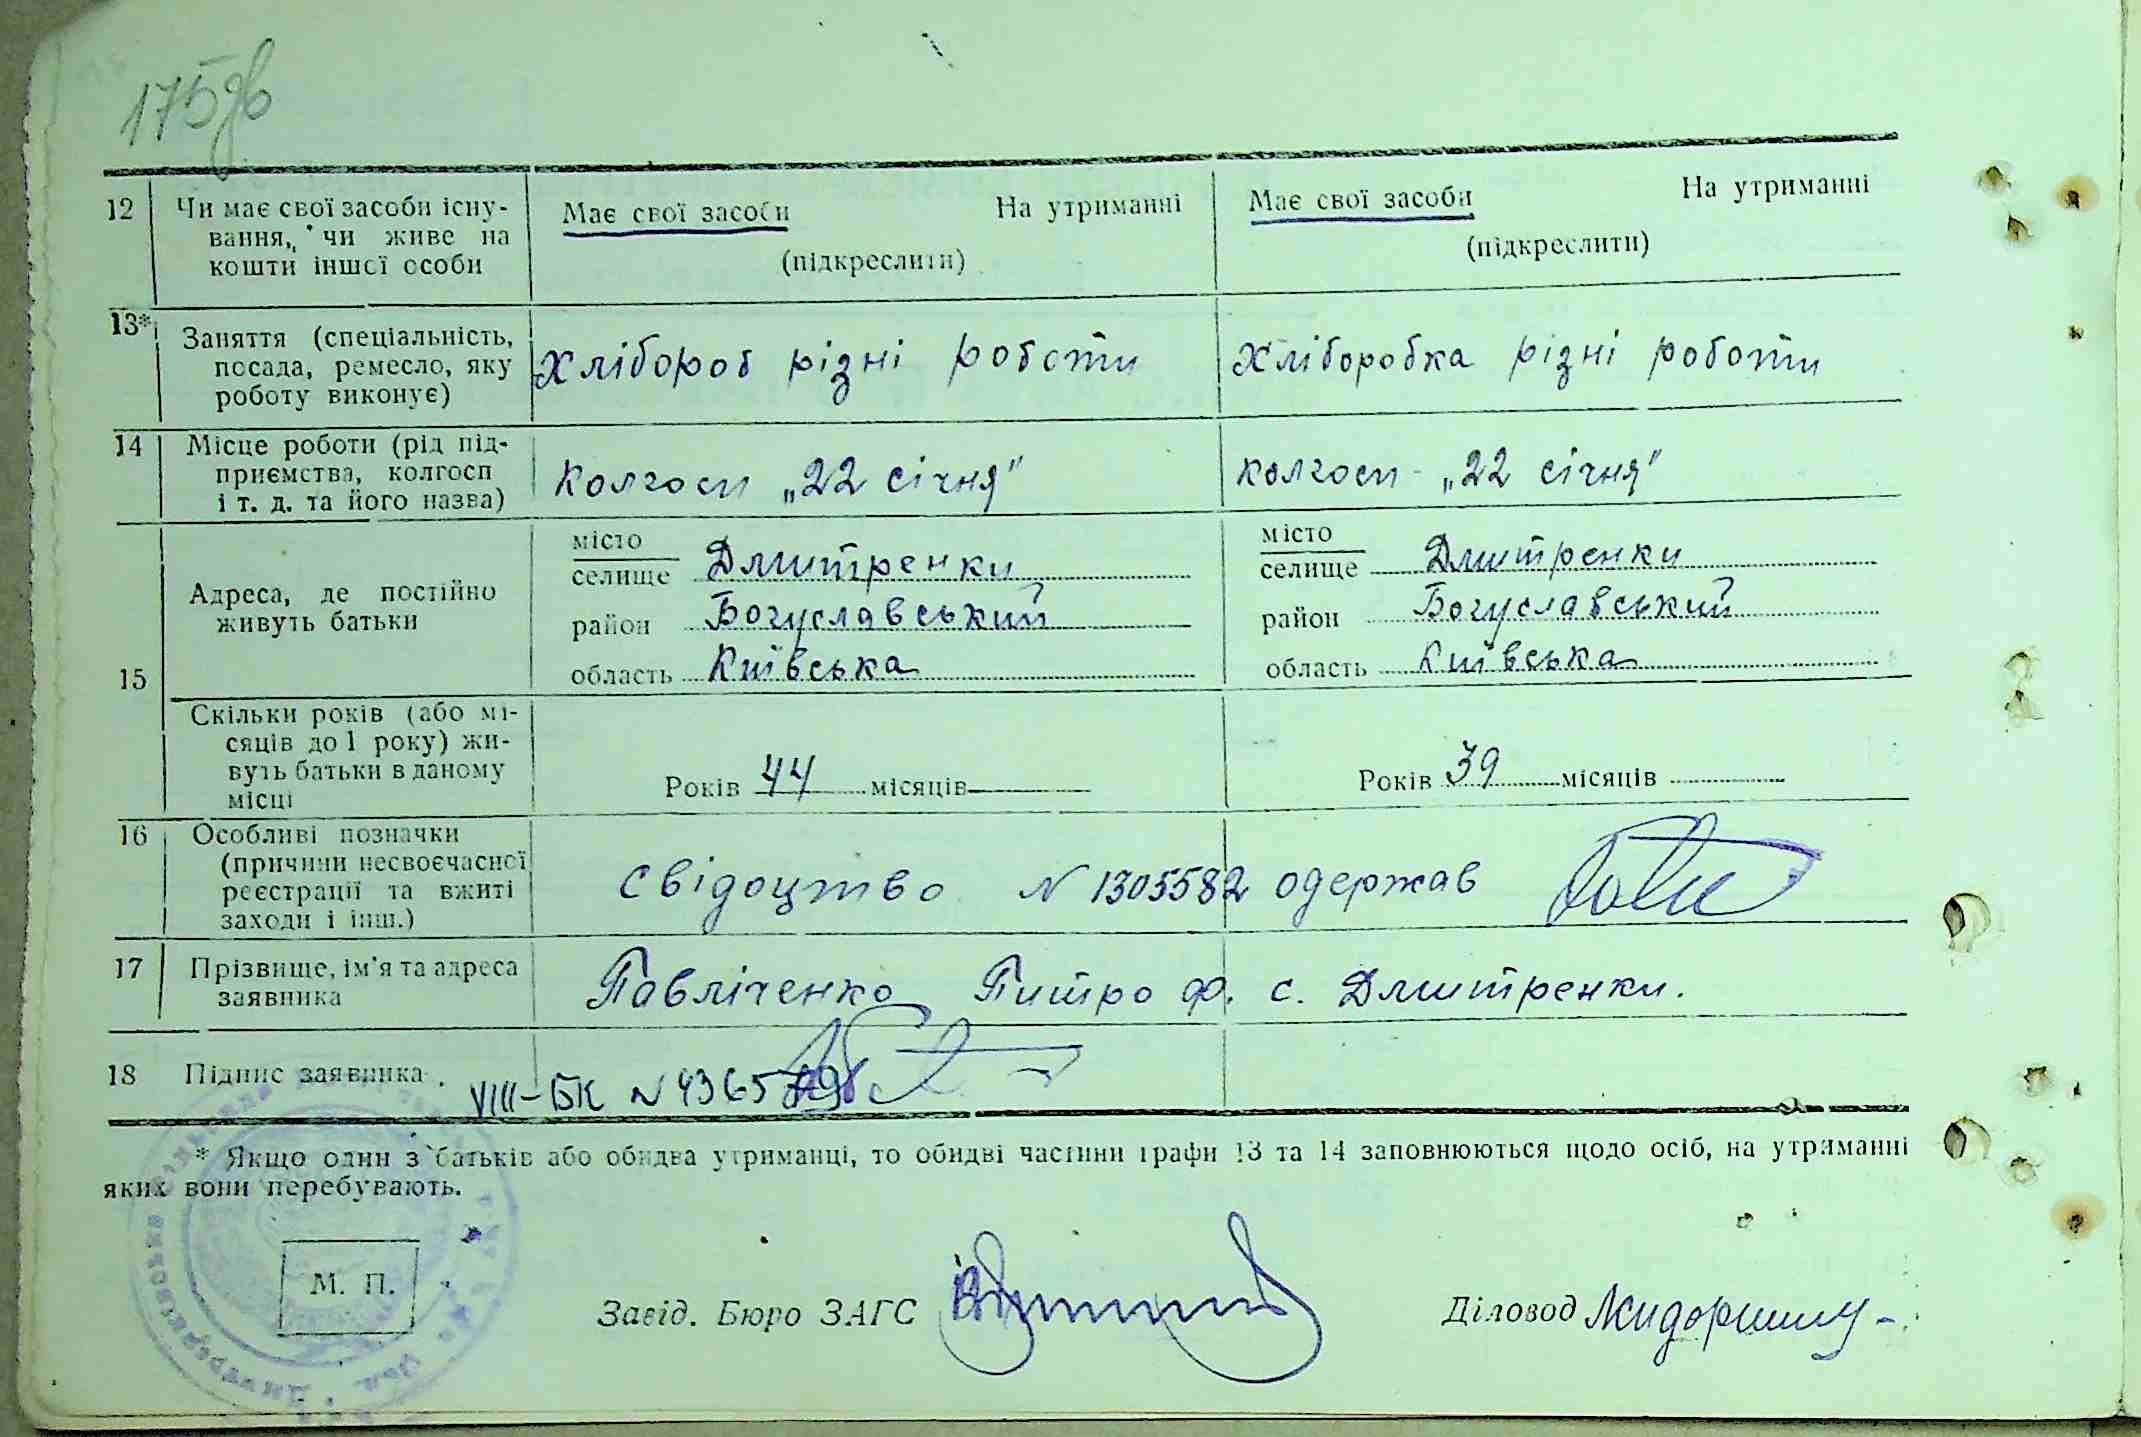 175 зв
12 Чи має свої засоби існу-
вання, чи живе на
кошти іншої особи
Має свої засоби На утриманні
(підкреслити)
Має свої засоби На утриманні
(підкреслити)
13* Заняття (спеціальність,
посада, ремесло, яку
роботу виконує)
Хлібороб різні роботи
Хліборобка різні роботи
14 Місце роботи (рід під-
приємства, колгосп
і т. д. та його назва)
Колгосп „22 січня"
колгосп „22 січня"
15
Адреса, де постійно
живуть батьки
місто
селище Дмитренки
район Богуславський
область Київська
місто
селище Дмитренки
район Богуславський
область Київська
Скільки років (або мі-
сяців до 1 року) жи-
вуть батьки в даному
місці
Років 44 місяців
Років 39 місяців
16 Особливі позначки
(причини несвоєчасної
реєстрації та вжиті
заходи і інш.)
Свідоцтво N 1305582 одержав
17 Прізвище, ім'я та адреса
заявника
Павліченко Питро Ф. с. Дмитренки.
18 Підпис заявника
VIII-БК N
* Якщо один з батьків або обидва утриманці, то обидві частини графи 13 та 14 заповнюються щодо осіб, на утриманні
яких вони перебувають.
М. П.
Завід. Бюро ЗАГС
Діловод